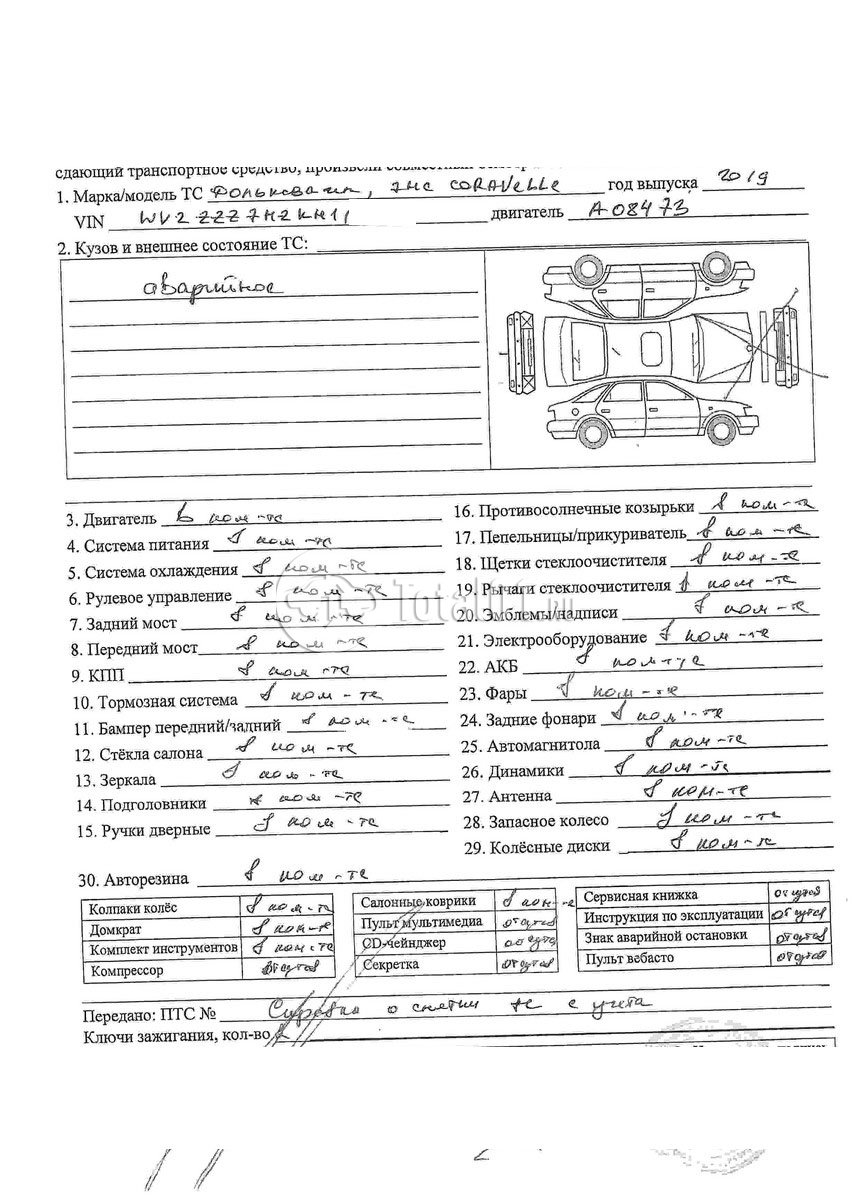 сдающий транспортное средство, произвели совместный
1. Марка/модель ТС Фольксваген, 7HC CORAVELLE год выпуска 2019
VIN WV2ZZZ7HZKH11 двигатель A08473
2. Кузов и внешнее состояние ТС:
аварийное
3. Двигатель в ком-те
4. Система питания в ком-те
5. Система охлаждения в ком-те
6. Рулевое управление в ком-те
7. Задний мост в ком-те
8. Передний мост в ком-те
9. КПП в ком-те
10. Тормозная система в ком-те
11. Бампер передний/задний в ком-те
12. Стёкла салона в ком-те
13. Зеркала в ком-те
14. Подголовники в ком-те
15. Ручки дверные в ком-те
16. Противосолнечные козырьки в ком-те
17. Пепельницы/прикуриватель в ком-те
18. Щетки стеклоочистителя в ком-те
19. Рычаги стеклоочистителя в ком-те
20. Эмблемы/надписи в ком-те
21. Электрооборудование в ком-те
22. АКБ в ком-те
23. Фары в ком-те
24. Задние фонари в ком-те
25. Автомагнитола в ком-те
26. Динамики в ком-те
27. Антенна в ком-те
28. Запасное колесо в ком-те
29. Колёсные диски в ком-те
30. Авторезина в ком-те
Колпаки колёс в ком-те
Домкрат в ком-те
Комплект инструментов в ком-те
Компрессор отсутсв
Салонные коврики в ком-те
Пульт мультимедиа отсутсв
CD-чейнджер отсутсв
Секретка отсутсв
Сервисная книжка отсутсв
Инструкция по эксплуатации отсутсв
Знак аварийной остановки отсутсв
Пульт вебасто отсутсв
Передано: ПТС № Справка о снятии тс с учета
Ключи зажигания, кол-во 2
Total01.ru